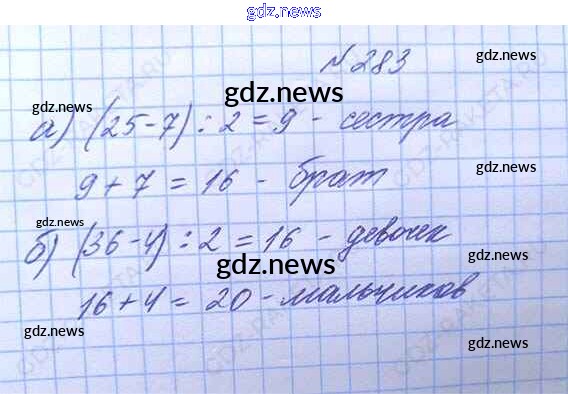 gdz.news
№283
а) (25-7) : 2 = 9 - сестра
9 + 7 = 16 - брат
б) (36-4) : 2 = 16 - девочек
16 + 4 = 20 - мальчиков
gdz.news
gdz.news
gdz.news
gdz.news
gdz.news
gdz.news
gdz.news
gdz.news
gdz.news